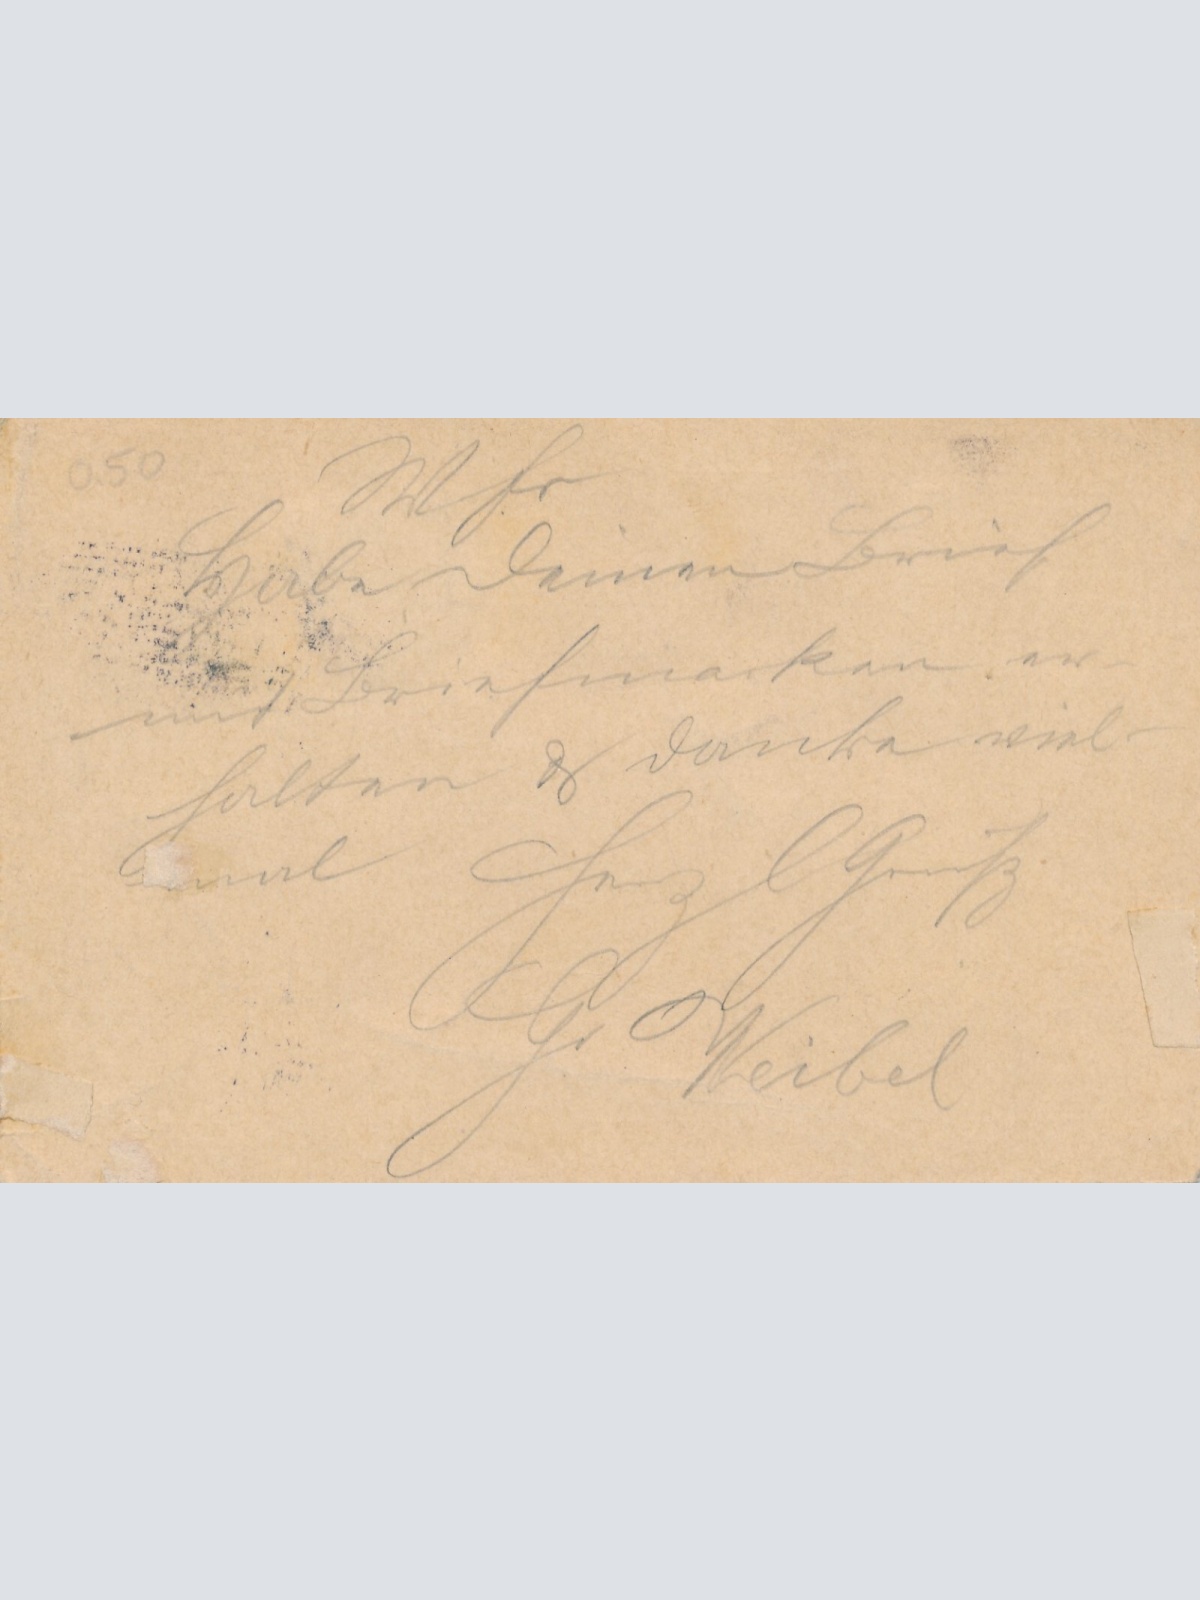 0.50
W Fr
Habe Deinen Brief
und Briefmarken er-
halten & danke viel-
mal Herzl Gruß
Weibel